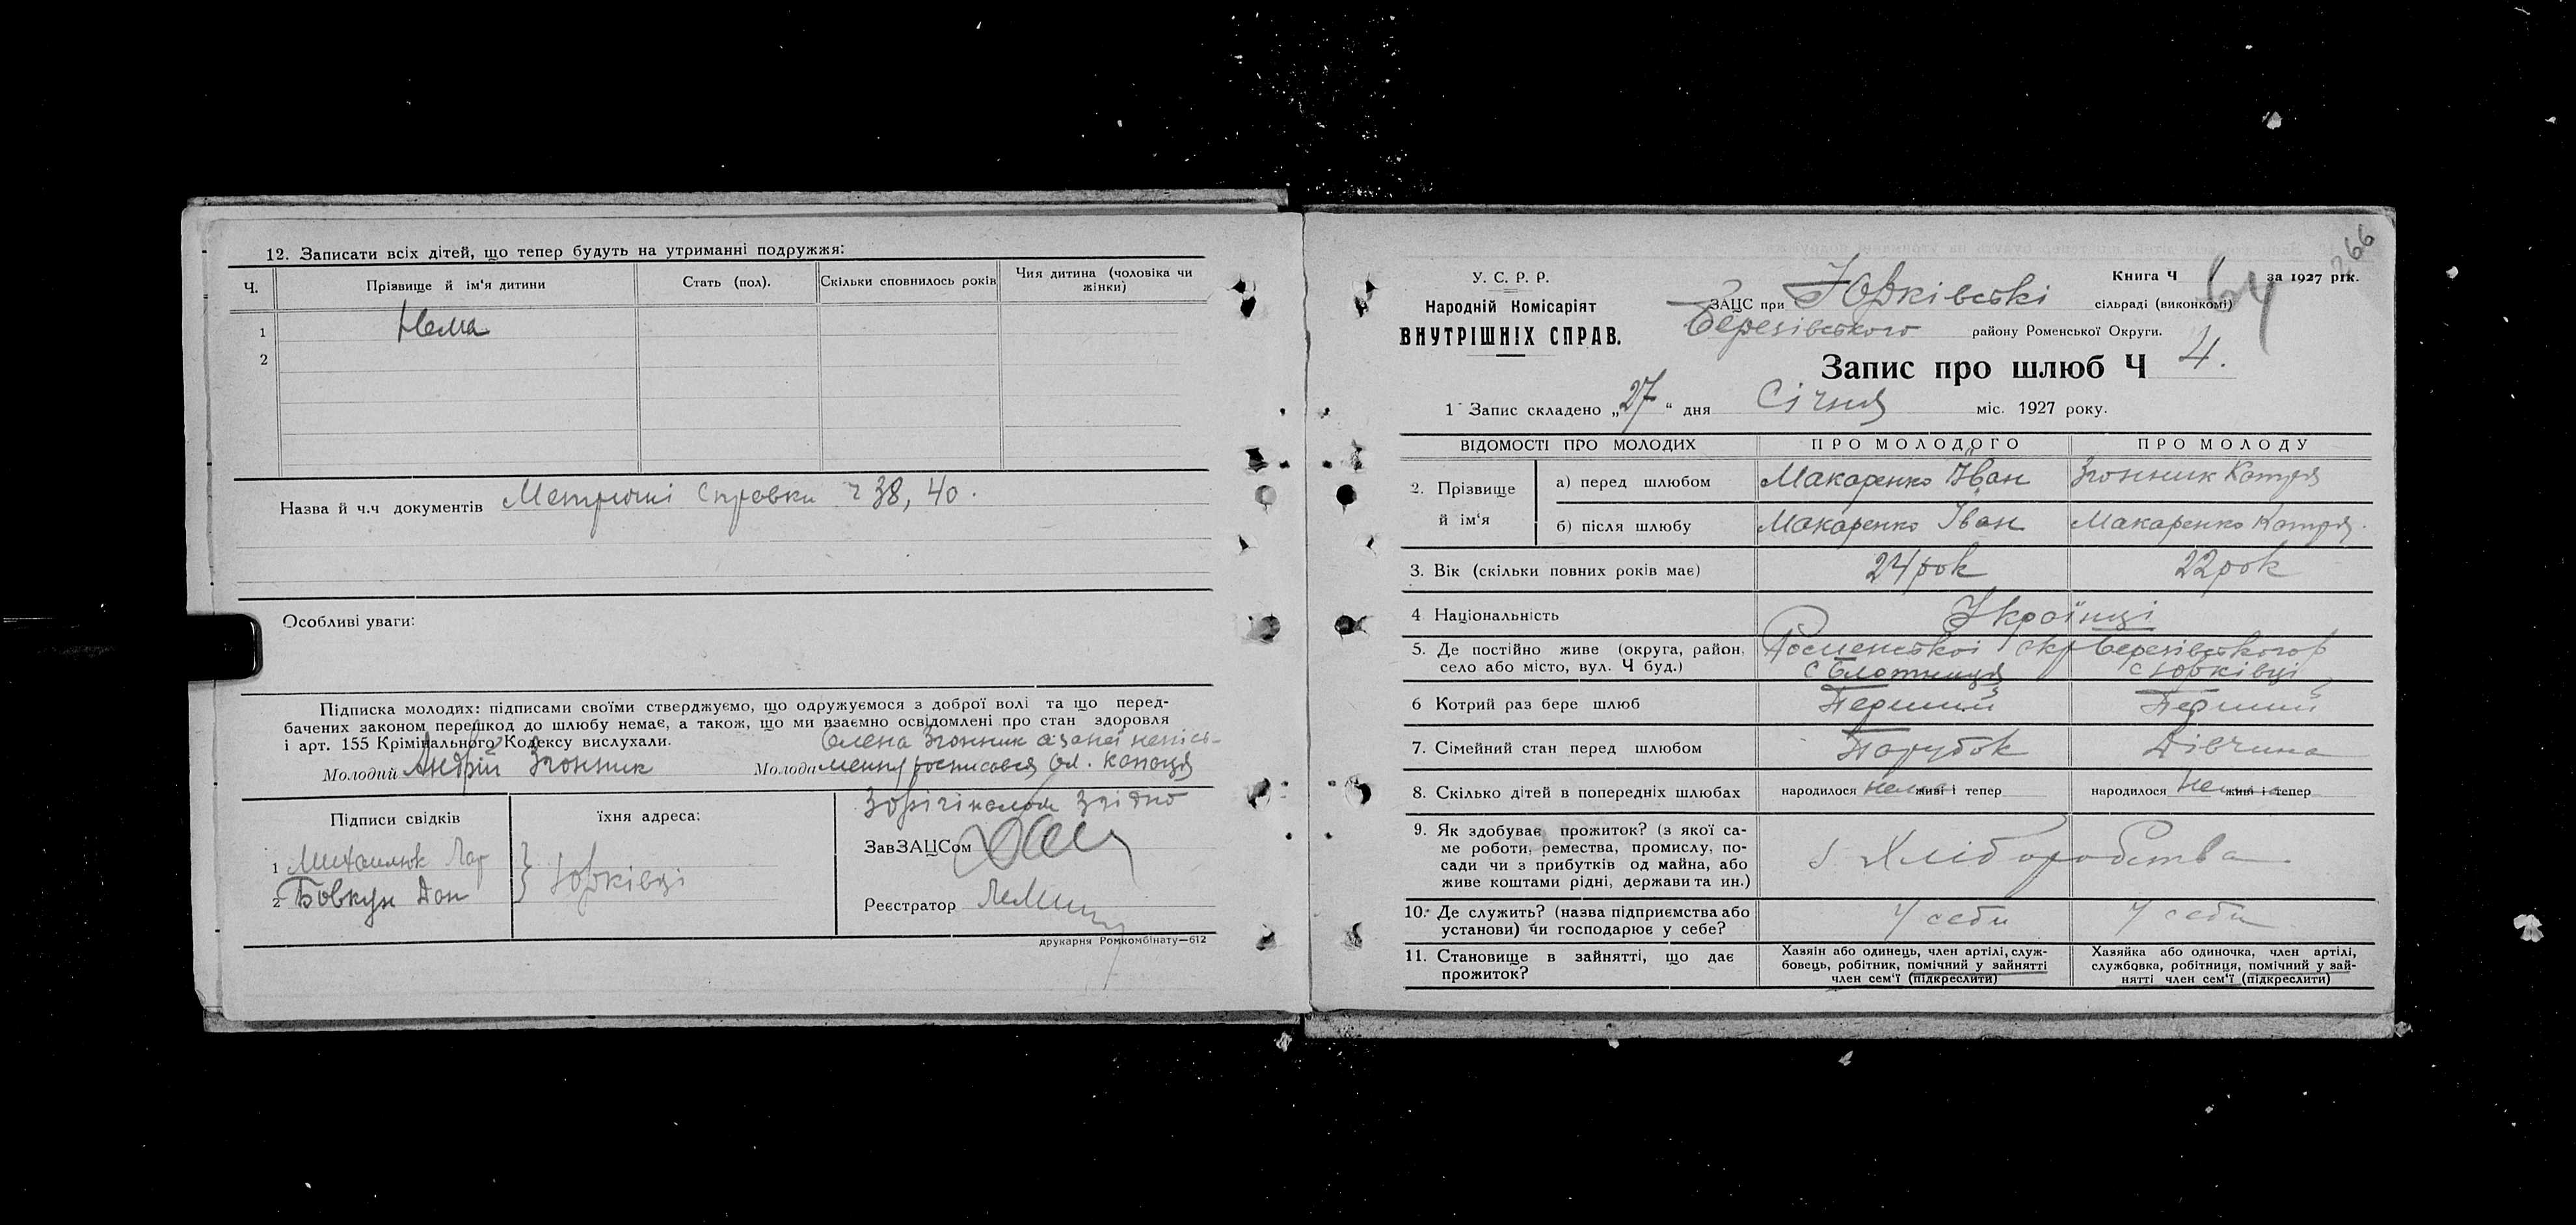 12. Записати всіх дітей, що тепер будуть на утриманні подружжя:
Ч. Прізвище й ім'я дитини Стать (пол). Скільки сповнилось років Чия дитина (чоловіка чи жінки)
1 Нема
2
Назва й ч.ч документів Метричні Справки ч 38, 40.
Особливі уваги:
Підписка молодих: підписами своїми стверджуємо, що одружуємося з доброї волі та що перед-
бачених законом перешкод до шлюбу немає, а також, що ми взаємно освідомлені про стан здоровля
і арт. 155 Крімінального Кодексу вислухали.
Олена Згонник а за неї неписьменну
Молодий Андрій Згонник Молода росписався
З орігіналом згідно
Підписи свідків їхня адреса:
ЗавЗАЦСом
1 Михайлюк
Юрківці
2 Бовкун Дан
Реєстратор
друкарня Ромкомбінату—612
266
У. С. Р. Р.
Народній Комісаріят
ВНУТРІШНІХ СПРАВ.
Книга Ч за 1927 рік.
64
ЗАЦС при Юрківські сільраді (виконкомі)
Березівського району Роменської Округи.
Запис про шлюб Ч 4.
1 Запис складено „27“ дня Січня міс. 1927 року.
ВІДОМОСТІ ПРО МОЛОДИХ ПРО МОЛОДОГО ПРО МОЛОДУ
2. Прізвище й ім'я
а) перед шлюбом Макаренко Іван Згонник Катря
б) після шлюбу Макаренко Іван Макаренко Катря.
3. Вік (скільки повних років має) 24 рок 22 рок
4 Національність Українці
5. Де постійно живе (округа, район, Роменської окр Березівського р
село або місто, вул. Ч буд.) с Блотниця с Юрківці
6 Котрий раз бере шлюб Перший Перший
7. Сімейний стан перед шлюбом Парубок Дівчина
8. Скілько дітей в попередніх шлюбах народилося нема живі і тепер народилося нема живі і тепер
9. Як здобуває прожиток? (з якої са-
ме роботи, ремества, промислу, по-
сади чи з прибутків од майна, або
живе коштами рідні, держави та ин.)
з Хліборобства
10. Де служить? (назва підприємства або
установи) чи господарює у себе?
У себи У себи
11. Становище в зайнятті, що дає
прожиток?
Хазяін або одинець, член артілі, служ-
бовець, робітник, помічний у зайнятті
член сем'ї (підкреслити)
Хазяйка або одиночка, член артілі,
службовка, робітниця, помічний у зай-
нятті член сем'ї (підкреслити)